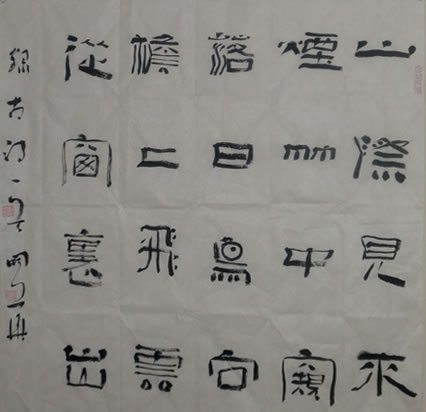 山際見來
煙竹中窺
落日鳥向
檐上飛雲
從窗裏出
錄古詩一首